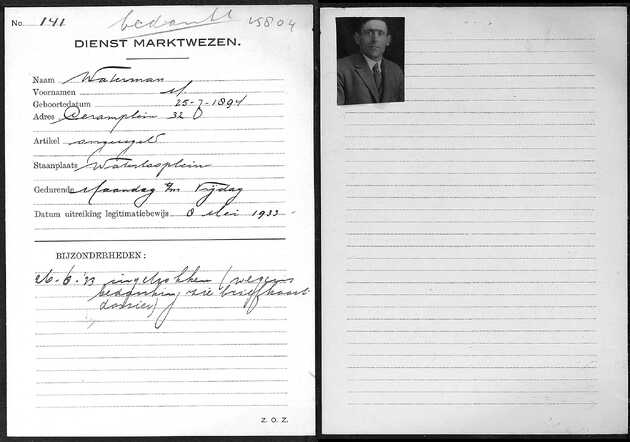 No. 141 bedankt 15804
DIENST MARKTWEZEN.
Naam Waterman
Voornamen M.
Geboortedatum 25-7-1894
Adres Ceramplein 32
Artikel ongeregeld
Staanplaats Waterlooplein
Gedurende Maandag t/m Vrijdag
Datum uitreiking legitimatiebewijs 8 Mei 1933
BIJZONDERHEDEN:
26-6-'33 ingetrokken (wegens
bedanken, zie briefkaart
dossier)
Z. O. Z.